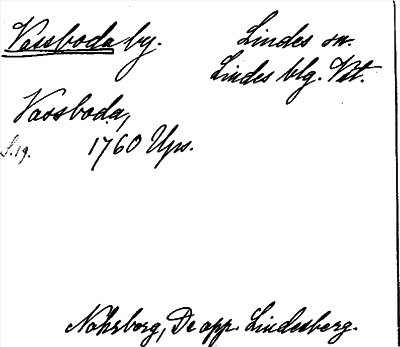 Vassboda by.
Lindes sn.
Lindes blg. Vst.
Vassboda,
S. 19.
1760 Ups.
Nohrborg, De app. Lindesberg.